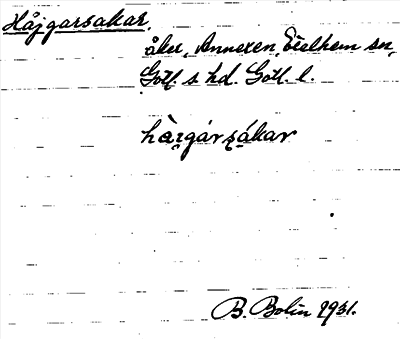 Håjgarsakar,
åker, Annexen, Etelhem sn,
Gotl. s. hd. Gotl. l.
hàrgár̥sákar
B. Bolin 1931.